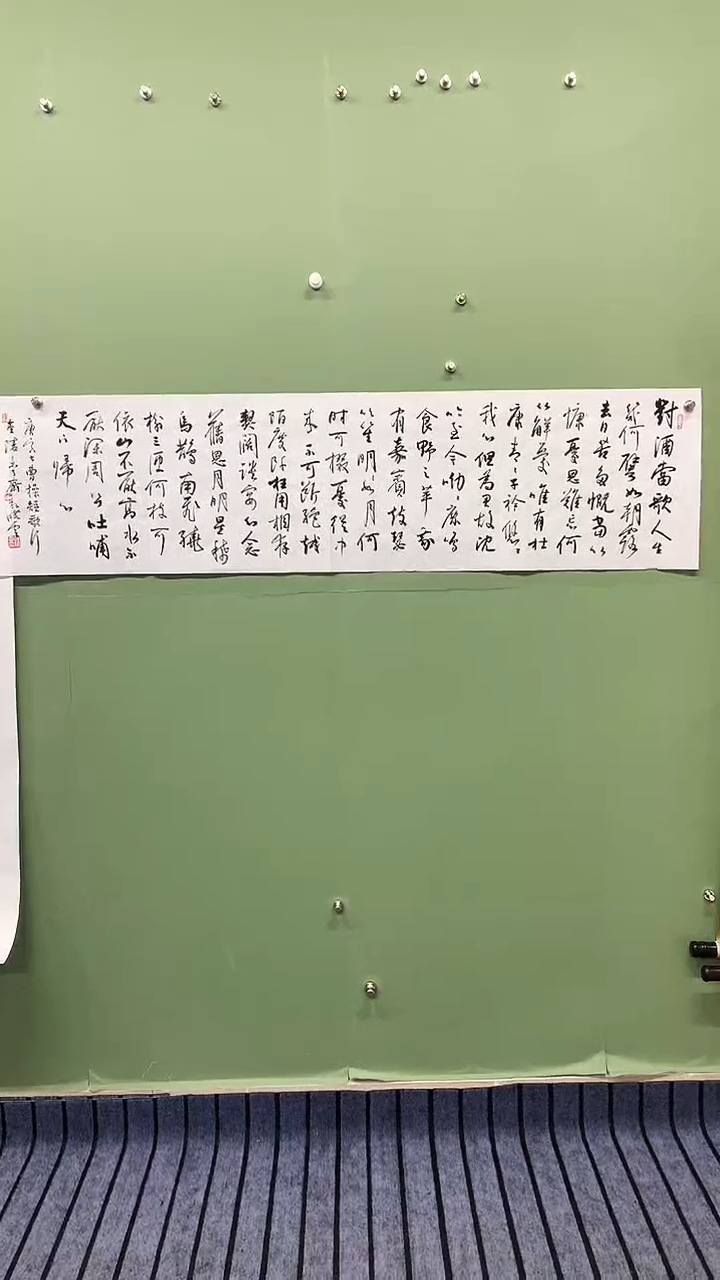 對酒當歌人生
幾何譬如朝露
去日苦多慨當以
慷憂思難忘何
以解憂唯有杜
康青々子衿悠々
我心但為君故沈
吟至今呦々鹿鳴
食野之苹我
有嘉賓鼓瑟
吹笙明々如月何
时可掇憂從中
來不可斷絕越
陌度阡枉用相存
契阔談宴心念
舊恩月明星稀
烏鵲南飛繞
樹三匝何枝可
依山不厭高水不
厭深周公吐哺
天下歸心
曹操短歌行